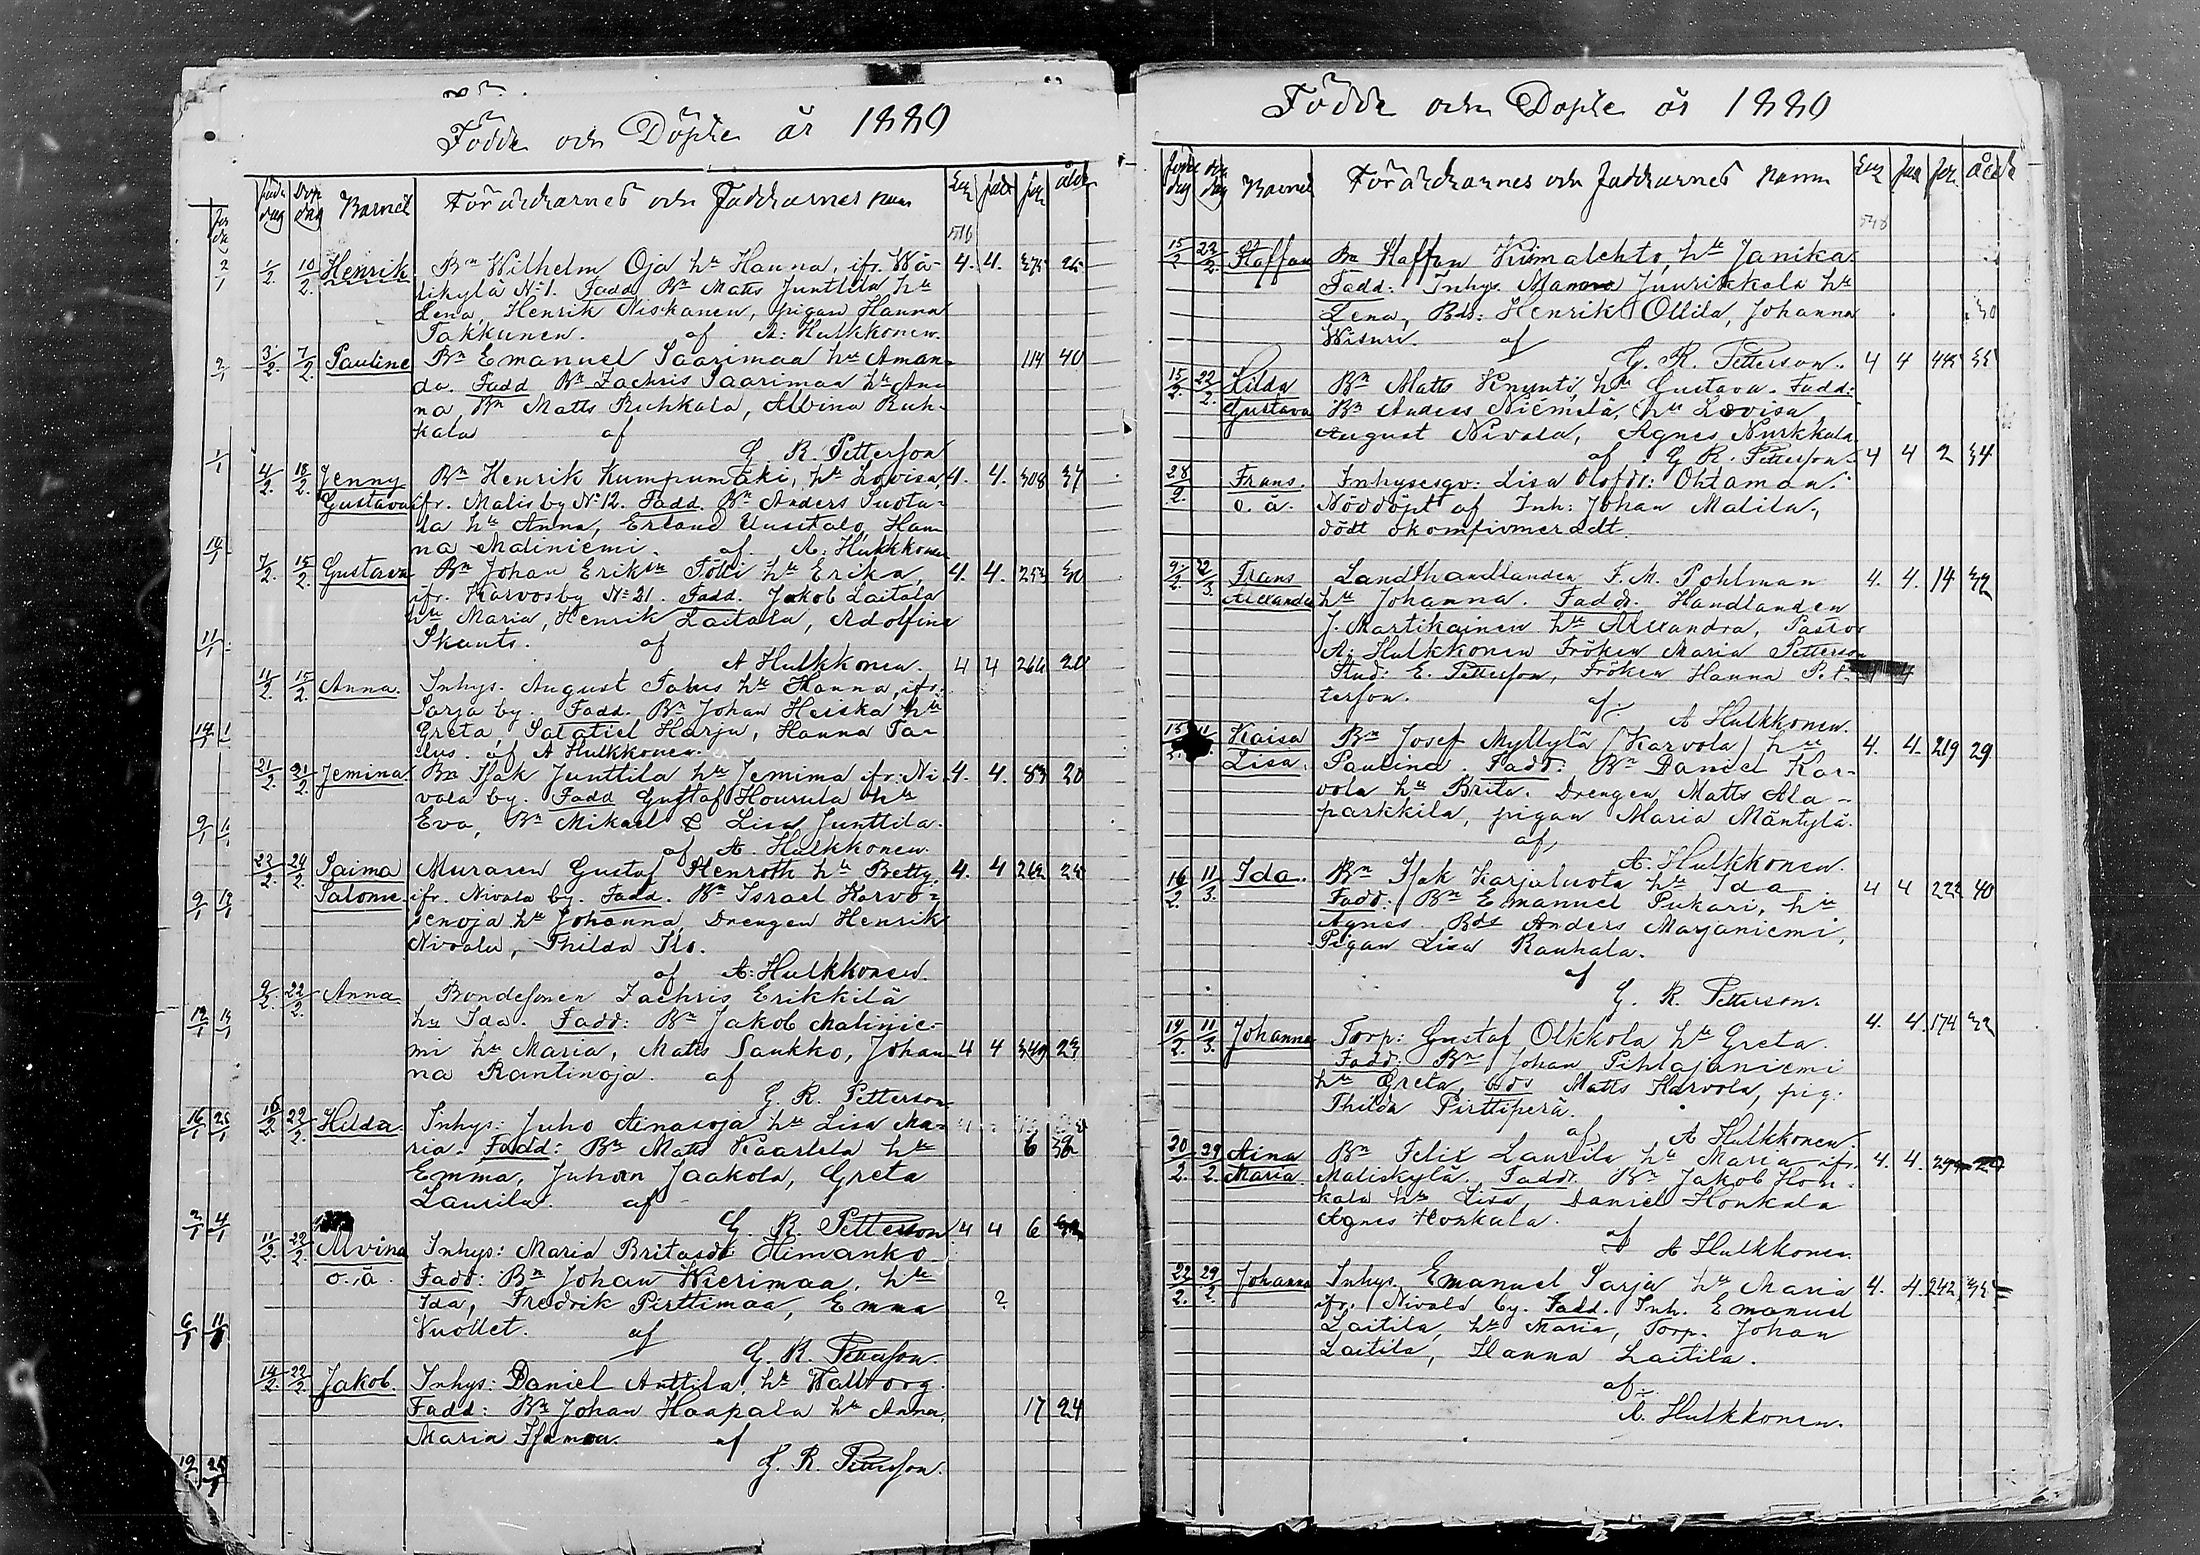 Födde och Döpte år 1880
Barnet Föräldrarnes och Faddrarnes namn
1/2 10/2 Henrik Bn Wilhelm Oja hu Hanna, ifr. Wä- 4. 4. 25
likylä No 1. Fadd Bn Matts Junttila hu
Lena, Henrik Niskanen, pigan Hanna
Takkunen. af A: Hulkkonen.
3/2 7/2 Pauline Bn Emanuel Saarimaa hu Aman- 114 40
da. Fadd Bn Zachris Saarimaa hu An-
na, Bn Matts Ruhkala, Albina Ruh-
kala af
G. R. Petterson
4/2 18/2 Jenny Bn Henrik Kumpumäki, hu Lovisa 4. 4. 308 37
Gustava ifr. Malisby No 12. Fadd. Bn Anders Suota-
la hu Anna, Erland Uusitalo, Han-
na Maliniemi. af. A: Hulkkonen
7/2 15/2 Gustava Bn Johan Eriksn Tölli hu Erika, 4. 4. 252 30
ifr. Karvosby No 21. Fadd. Jakob Laitala
hu Maria, Henrik Laitala, Adolfina
Skants. af
A Hulkkonen.
11/2 15/2 Anna. Inhys. August Talus hu Hanna, ifr. 4 4 266 20
Sarja by. Fadd. Bn Johan Heiska hu
Greta, Salatiel Harju, Hanna Ta-
lus. af A Hulkkonen.
21/2 21/2 Jemina Bn Isak Junttila hu Jemima ifr: Ni- 4. 4. 83 20
vala by. Fadd Gustaf Hourula hu
Eva, Bn Mikael & Lisa Junttila.
af A. Hulkkonen.
22/2 24/2 Saima Muraren Gustaf Stenroth hu Betty. 4. 4 262 25
Salome. ifr. Nivala by. Fadd. Bn Israel Karvo-
senoja hu Johanna, Drengen Henrik
Nivala, Thilda
af A: Hulkkonen.
9/2 22/2 Anna Bondesonen Zachris Erikkilä
hu Ida. Fadd: Bn Jakob Malinie-
mi hu Maria, Matts Saukko, Johan- 4 4 349 23
na Rantinoja. af
G. R. Petterson
16/2 22/2 Hilda. Inhys: Juho Ainasoja hu Lisa Ma-
ria. Fadd: Bn Matts Kaarlela hu 6 32
Emma, Juhan Jaakola, Greta
Laurila. af
G. R. Petterson 4 4 6
11/2 22/2 Alvina Inhys: Maria Britasdr Himanko
o. ä. Fadd: Bn Johan Wierimaa, hu
Ida, Fredrik Pirttimaa, Emma 2
Vuollet. af
G. R. Petterson.
14/2 22/2 Jakob. Inhys: Daniel Anttila, hu Wallborg.
Fadd: Bn Johan Haapala hu Anna, 17 24
Maria af
G. R. Petterson.
Födde och Döpte år 1880
Barnet Föräldrarnes och Faddrarnes namn
15/2 22/2 Staffan Bn Staffan Kiimalehto, hu Janika.
Fadd: Inhys. Juurikkala hu
Lena, Bds: Henrik Ollila, Johanna 30
Wisuri. af
G. R. Petterson.
15/2 22/2 Hilda Bn Matts Kinnunti, hu Gustava. Fadd: 4 4 35
Gustava Bn Anders Niemelä, hu Lovisa
August Nivala, Agnes Nurkkala
af G. R. Petterson. 4 4 2 34
28/2 Frans. Inhysesqv: Lisa Olofdr: Ohtamaa.
o. ä. Nöddöpt af Inh: Johan Malila,
dödt okonfirmeradt.
22/3 Frans Landthandlanden F. M. Pohlman 4. 4. 14 32
Alexander hu Johanna. Fadd. Handlanden
J. Martikainen hu Alexandra, Pastor
A: Hulkkonen Fröken Maria Petterson
Stud: E. Petterson, Fröken Hanna Pet-
terson. af.
A Hulkkonen.
Kaisa Bn Josef Myllylä (Karvola) hu 4. 4. 219 29
Lisa. Paulina. Fadd: Bn Daniel Kar-
vola hu Brita. Drengen Matts Ala-
parkkila, pigan Maria Mäntylä.
af,
A: Hulkkonen.
16/2 11/3 Ida. Bn Isak Karjaluoto hu Ida 4 4 222 40
Fadd: Bn Emanuel Pukari, hu
Agnes. Bds Anders Marjaniemi,
Pigan Lisa Rauhala.
af
G. R. Petterson.
19/2 11/3 Johanna Torp: Gustaf Olkkola hu Greta. 4. 4. 174 32
Fadd: Bn Johan Pihlajaniemi
hu Greta, Bds Matts Karvola, pig:
Thilda Pirttiperä.
af A Hulkkonen.
20/2 29/2 Aina Bn Felix Laurila hu Maria ifr. 4. 4.
Maria Maliskylä. Fadd. Bn Jakob Hon-
kala hu Lisa, Daniel Honkala
Agnes Honkala.
af A Hulkkonen.
22/2 29/2 Johanna Inhys. Emanuel Sarja hu Maria 4. 4. 242 35
ifr. Nivala by. Fadd. Inh. Emanuel
Laitila, hu Maria, Torp. Johan
Laitila, Hanna Laitila.
af
A. Hulkkonen.